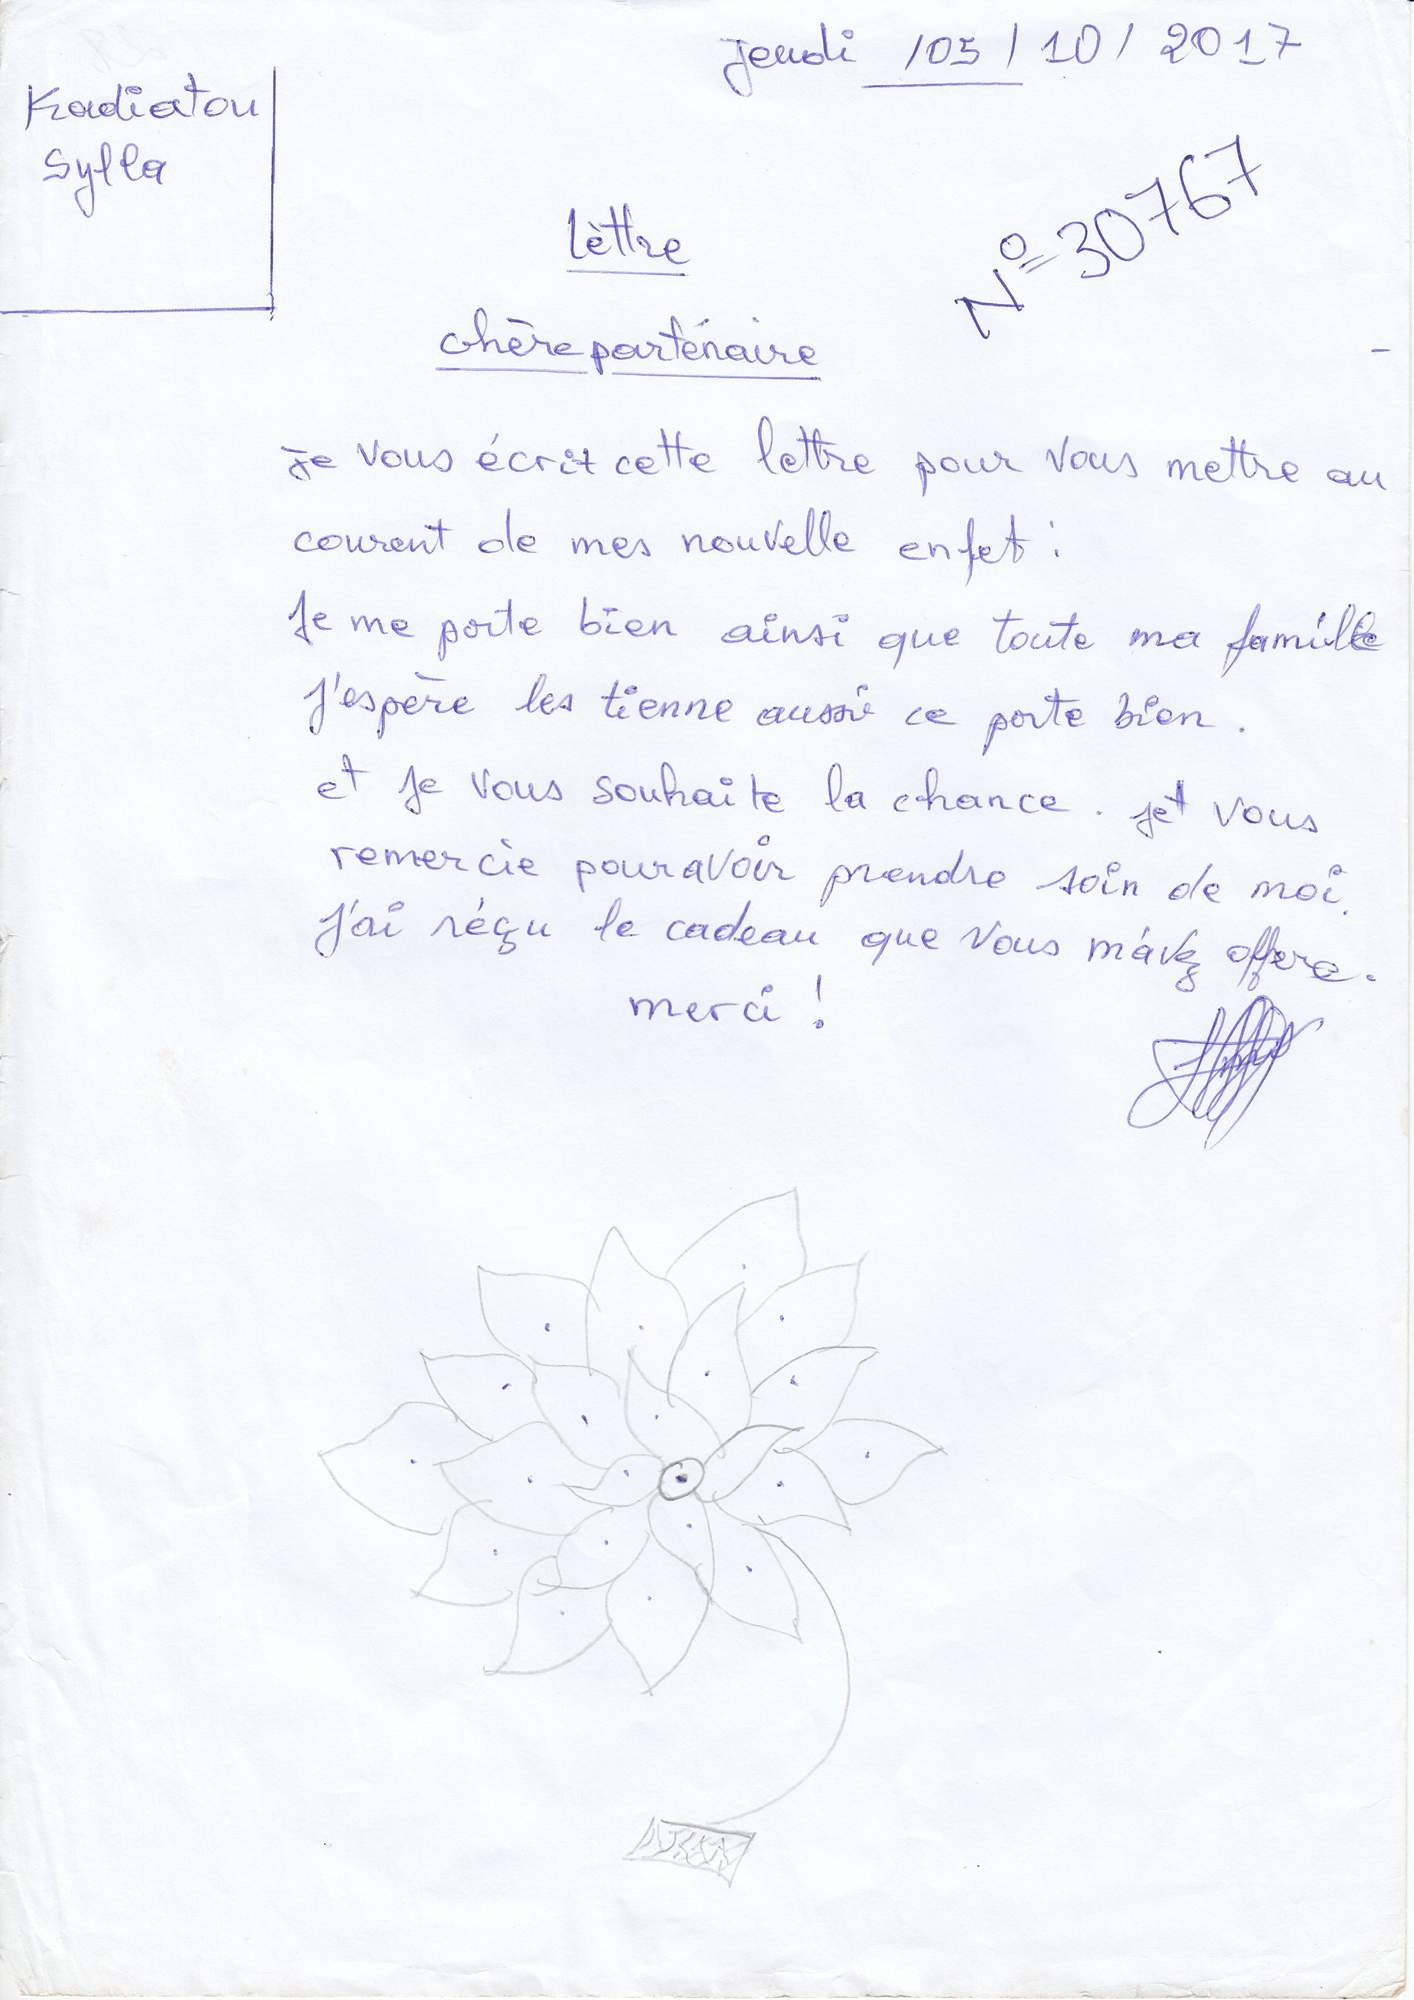 jeudi /05/10/2017
Kadiatou
Sylla
N° 30767
lèttre
chère parténaire
je vous écrit cette lettre pour vous mettre au
courent de mes nouvelle enfet :
Je me porte bien ainsi que toute ma famille
J'espère les tienne aussi ce porte bien .
et je vous souhaite la chance . jet vous
remercie pour avoir prendre soin de moi.
J'ai réçu le cadeau que vous m'avez offere.
merci !